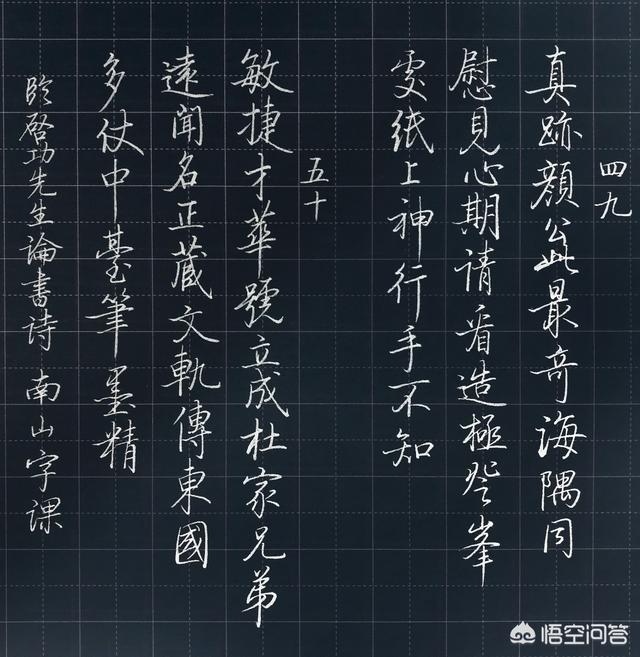 四九
真跡顏公此最奇海隅同
慰見心期请看造極登峯
處纸上神行手不知
五十
敏捷才華號立成杜家兄弟
遠聞名正藏文軌傳東國
多仗中臺筆墨精
临啓功先生論書诗 南山字课
悟空问答